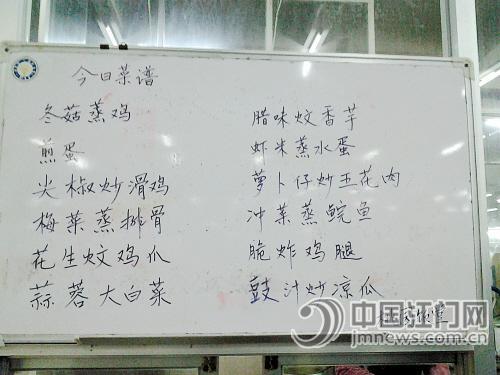 今日菜谱
冬菇蒸鸡
煎蛋
尖椒炒滑鸡
梅菜蒸排骨
花生炆鸡爪
蒜蓉大白菜
腊味炆香芋
虾米蒸水蛋
萝卜仔炒五花肉
冲菜蒸鲩鱼
脆炸鸡腿
豉汁炒凉瓜
中国江门网
jmnews.com.cn